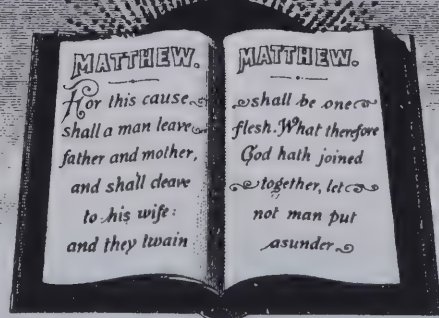 MATTHEW.
For this cause
shall a man leave
father and mother,
and shall cleave
to his wife:
and they twain
MATTHEW.
shall be one
flesh. What therefore
God hath joined
together, let
not man put
asunder